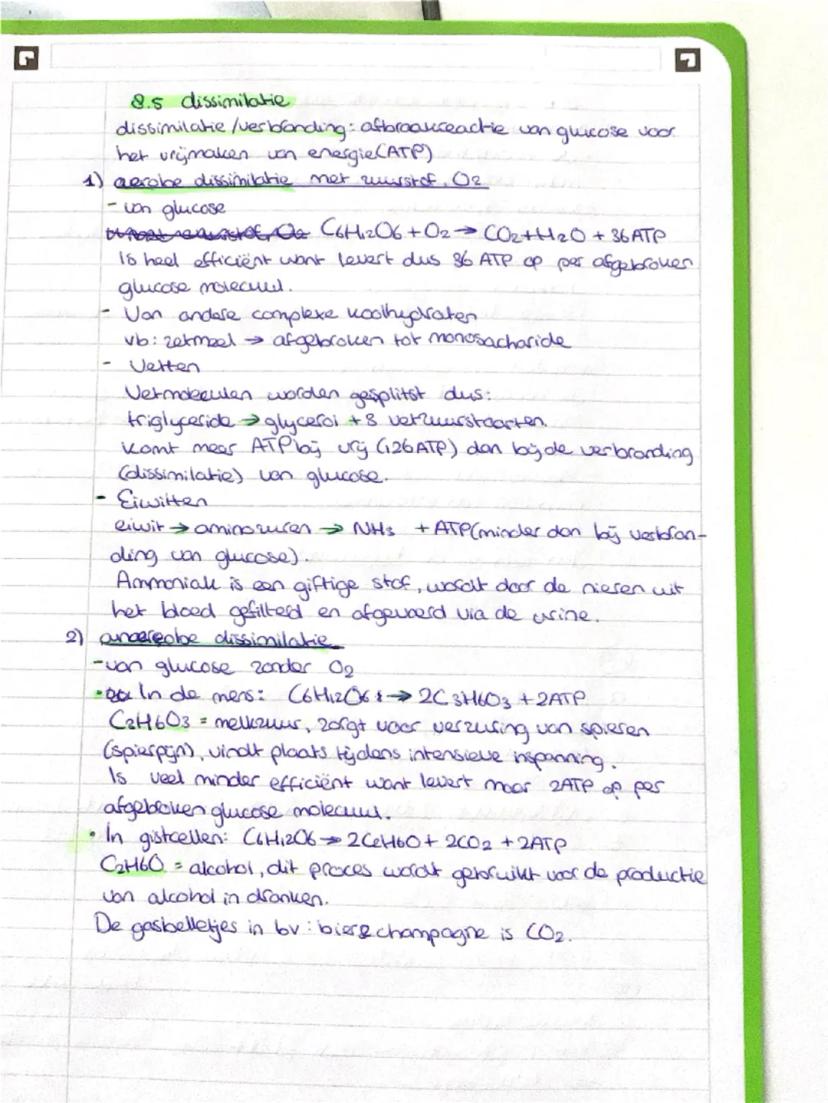 8.5 dissimilatie
dissimilatie/verbranding: afbraakreactie van glucose voor
het vrijmaken van energie(ATP)
1) aerobe dissimilatie met zuurstof, O2
- van glucose
C6H12O6 + O2 → CO2 + H2O + 36 ATP
Is heel efficiënt want levert dus 36 ATP op per afgebroken
glucose molecuul.
- Van andere complexe koolhydraten
vb: zetmeel → afgebroken tot monosacharide
- Vetten
Vetmoleculen worden gesplitst dus:
triglyceride → glycerol + 3 vetzuurstaarten.
Komt meer ATP bij vrij (126 ATP) dan bij de verbranding
(dissimilatie) van glucose.
- Eiwitten
eiwit → aminozuren → NH3 + ATP (minder dan bij verbran-
ding van glucose).
Ammoniak is een giftige stof, wordt door de nieren uit
het bloed gefilterd en afgevoerd via de urine.
2) anaerobe dissimilatie
- van glucose zonder O2
• In de mens: C6H12O6 → 2C3H6O3 + 2ATP
C2H6O3 = melkzuur, zorgt voor verzuring van spieren
(spierpijn), vindt plaats tijdens intensieve inspanning.
Is veel minder efficiënt want levert maar 2ATP op per
afgebroken glucose molecuul.
• In gistcellen: C6H12O6 → 2C2H6O + 2CO2 + 2ATP
C2H6O = alcohol, dit proces wordt gebruikt voor de productie
van alcohol in dranken.
De gasbelletjes in bv: bier & champagne is CO2.